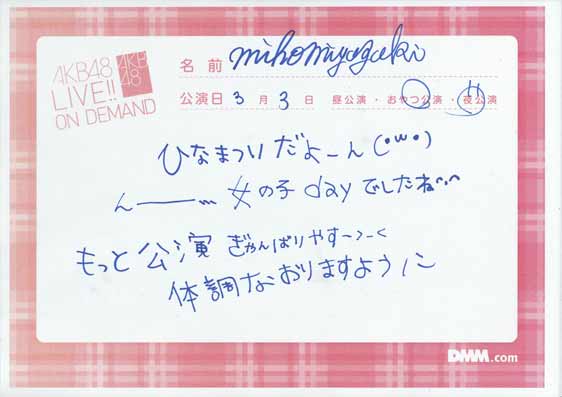 AKB48
LIVE!!
ON DEMAND
AKB
48
名前 mihomiyazaki
公演日 3月3日 昼公演・おやつ公演・夜公演
ひなまつりだよーん(・ω・)
んーーー 女の子dayでしたね
もっと公演 ぎゃんばりやすーっ
体調なおりますように
DMM.com